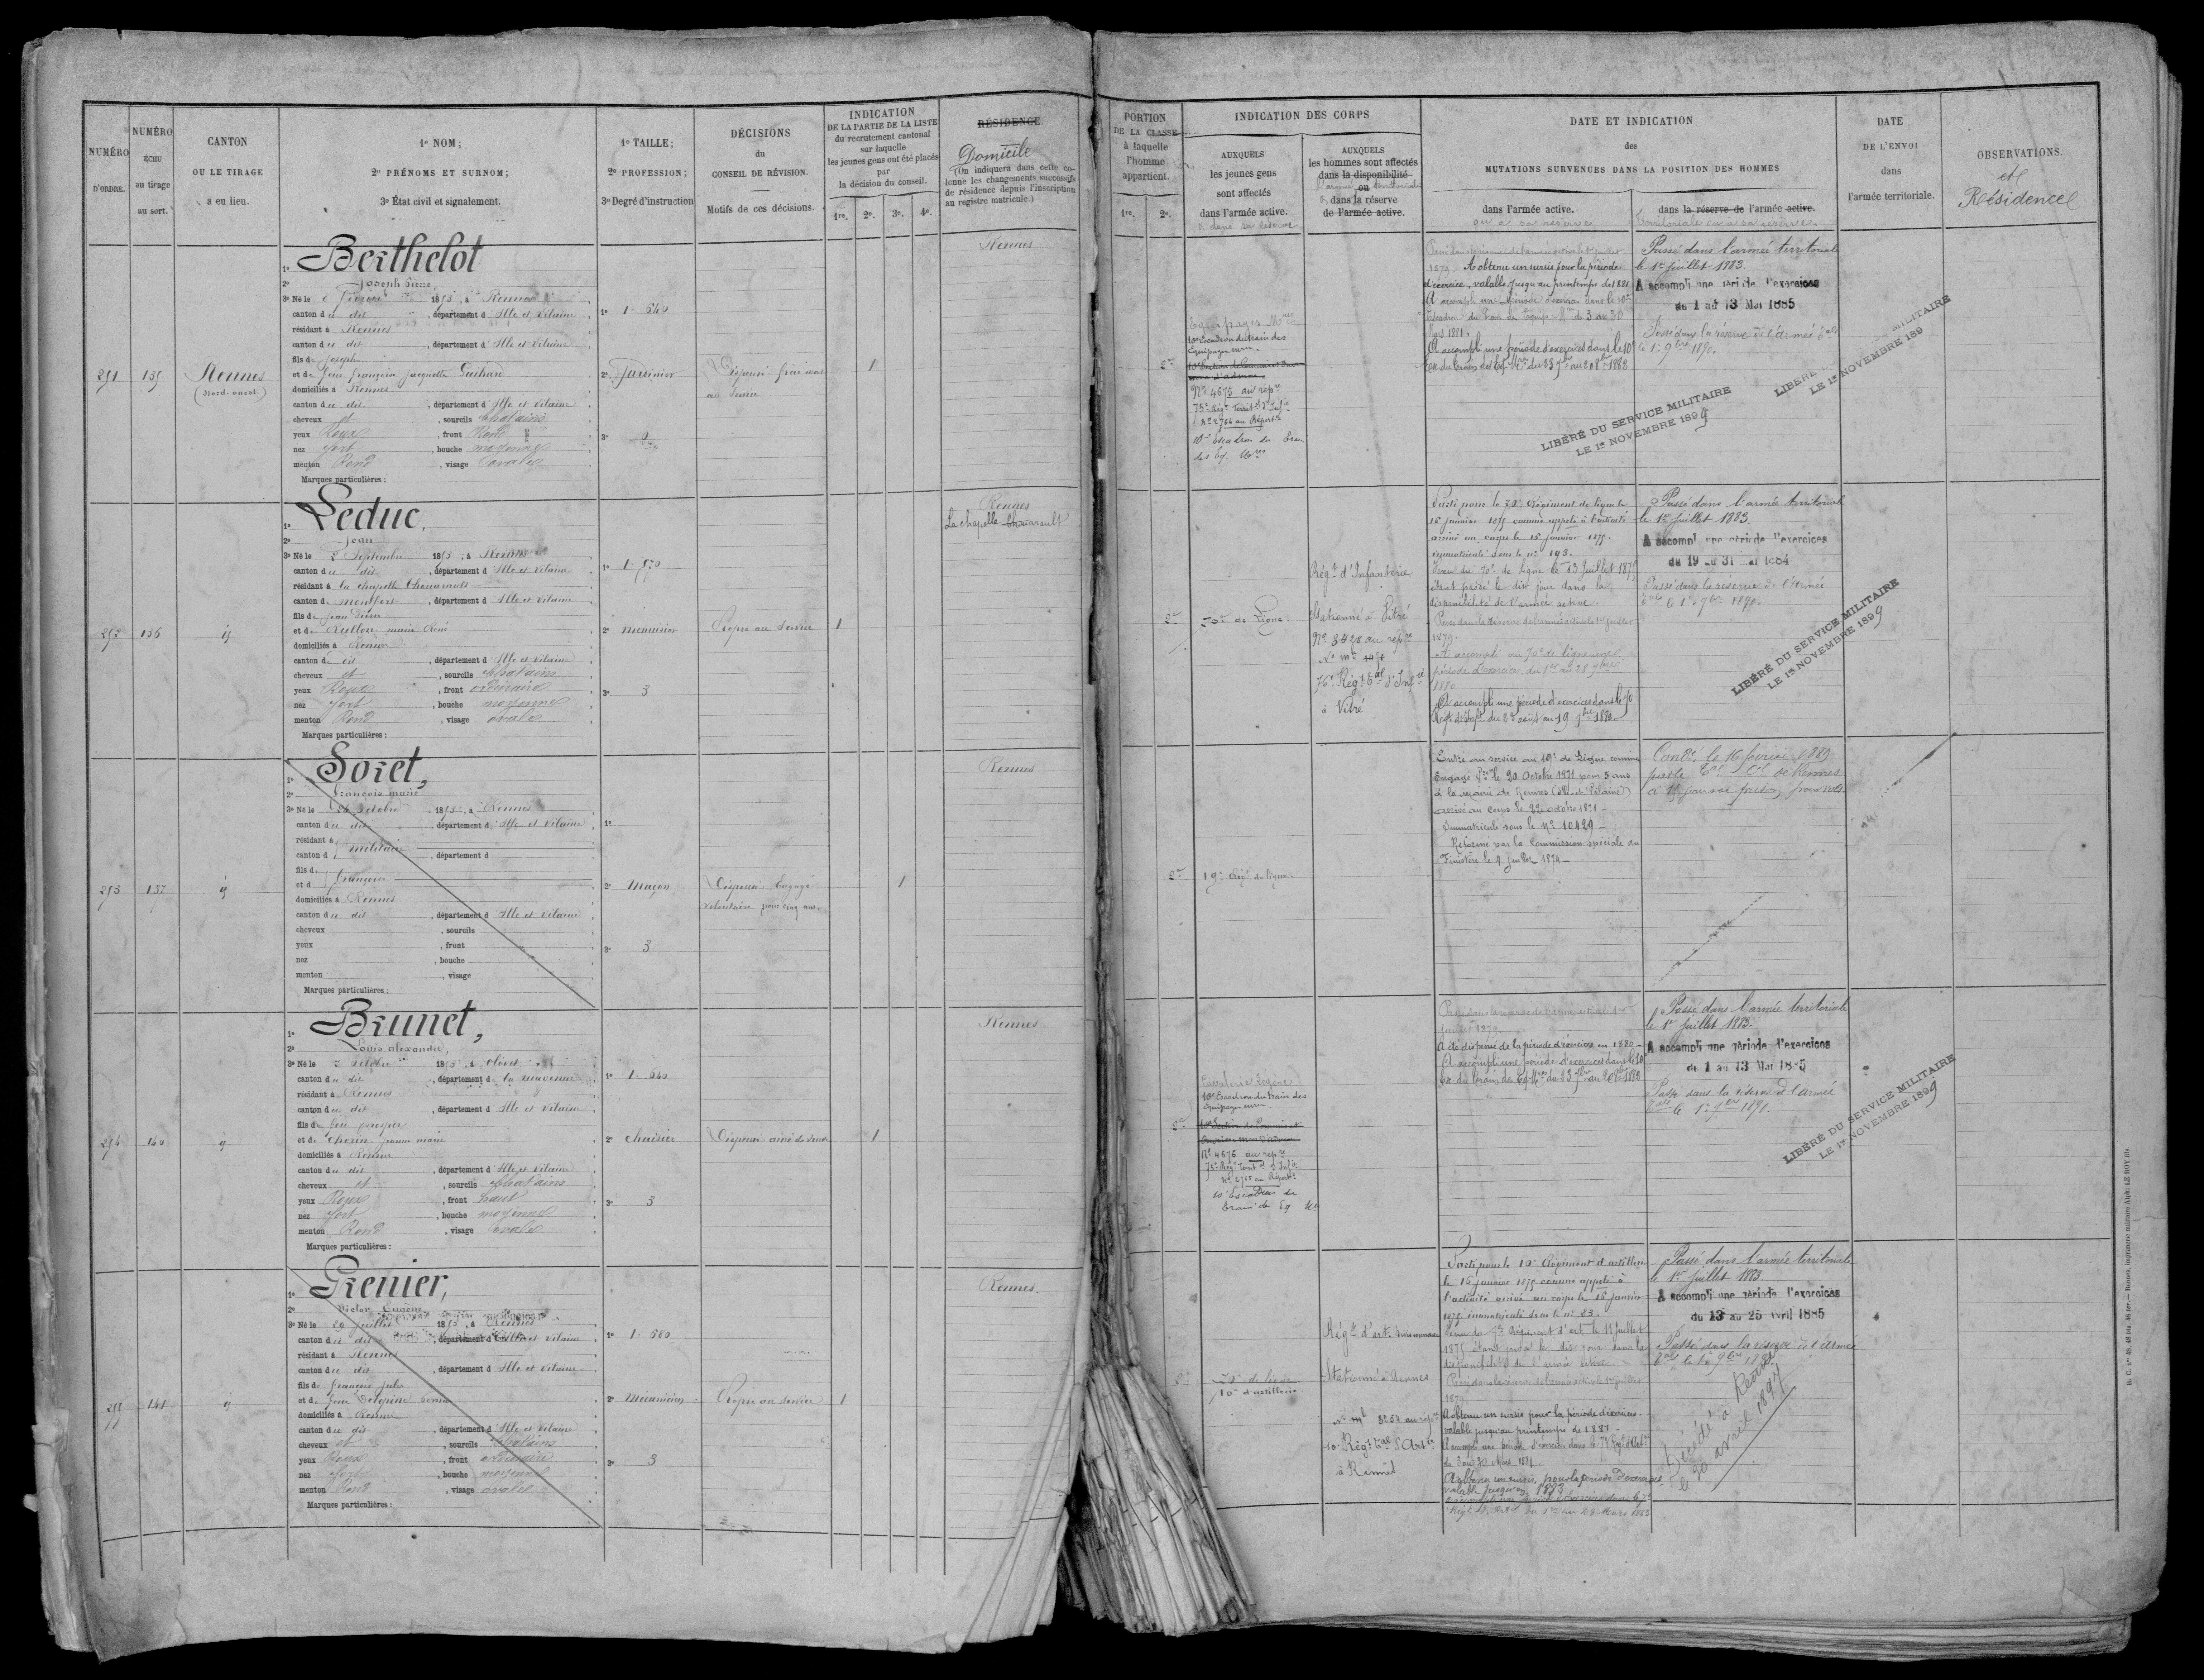 NUMÉRO
D'ORDRE.
NUMÉRO
ÉCHU
au tirage
au sort.
CANTON
OU LE TIRAGE
a eu lieu.
1º NOM;
2º PRÉNOMS ET SURNOM;
3º État civil et signalement.
1º TAILLE;
2º PROFESSION;
3º Degré d'instruction
DÉCISIONS
du
CONSEIL DE RÉVISION.
Motifs de ces décisions.
INDICATION
DE LA PARTIE DE LA LISTE
du recrutement cantonal
sur laquelle
les jeunes gens ont été placés
par
la décision du conseil.
1re. 2e. 3e. 4e.
RÉSIDENCE
Domicile
(On indiquera dans cette co-
lonne les changements successifs
de résidence depuis l'inscription
au registre matricule.)
251
135
Rennes
(Nord-ouest)
1º Berthelot
2º Joseph Pierre,
3º Né le 1853, à Rennes
canton du dit, département d'Ille et Vilaine
résidant à Rennes
canton du dit, département d'Ille et Vilaine
fils de Joseph
et de feue françoise jacquette Guihard
domiciliés à Rennes
canton du dit, département d'Ille et Vilaine
cheveux et, sourcils chatains
yeux Roux, front Rond
nez fort, bouche moyenne
menton Rond, visage ovale
Marques particulières:
1º 1. 640
2º Jardinier
3º 0
Dispensé frère mort
au service
1
Rennes
252
136
id
1º Leduc,
2º Jean
3º Né le 2 Septembre 1853, à Rennes
canton du dit, département d'Ille et Vilaine
résidant à la chapelle thouarault
canton de montfort, département d'Ille et Vilaine
fils de Jean Pierre
et de Rullon marie René
domiciliés à Rennes
canton du dit, département d'Ille et Vilaine
cheveux et, sourcils chatains
yeux Roux, front ordinaire
nez fort, bouche moyenne
menton Rond, visage ovale
Marques particulières:
1º 1. 570
2º menuisier
3º 3
Propre au service
1
Rennes
La chapelle thouarault
253
137
id
1º Soret,
2º François marie
3º Né le 26 octobre 1853, à Rennes
canton du dit, département d'Ille et Vilaine
résidant à militaire
canton d, département d
fils de françoise
et d
domiciliés à Rennes
canton du dit, département d'Ille et Vilaine
cheveux, sourcils
yeux, front
nez, bouche
menton, visage
Marques particulières:
1º
2º Maçon
3º 3
Dispensé. Engagé
volontaire pour cinq ans.
1
Rennes
254
140
id
1º Brunet,
2º Louis alexandre,
3º Né le 3 octobre 1853, à
canton du dit, département de la mayenne
résidant à Rennes
canton du dit, département d'Ille et Vilaine
fils de feu prosper
et de thorin jeanne marie
domiciliés à Rennes
canton du dit, département d'Ille et Vilaine
cheveux et, sourcils chatains
yeux Roux, front haut
nez fort, bouche moyenne
menton Rond, visage ovale
Marques particulières:
1º 1. 640
2º chaisier
3º 3
Dispensé ainé de veuve
1
Rennes
255
141
id
1º Grenier,
2º Victor Eugène
3º Né le 29 juillet 1853, à Rennes
canton du dit, département d'Ille et Vilaine
résidant à Rennes
canton du dit, département d'Ille et Vilaine
fils de françois jules
et de feue Delepine
domiciliés à Rennes
canton du dit, département d'Ille et Vilaine
cheveux et, sourcils chatains
yeux Roux, front ordinaire
nez fort, bouche moyenne
menton Rond, visage ovale
Marques particulières:
1º 1. 680
2º Mécanicien
3º 3
Propre au service
1
Rennes.
PORTION
DE LA CLASSE
à laquelle
l'homme
appartient.
1re. 2e.
INDICATION DES CORPS
AUXQUELS
les jeunes gens
sont affectés
dans l'armée active.
& dans sa réserve
AUXQUELS
les hommes sont affectés
dans la disponibilité
ou
dans la réserve
de l'armée active.
l'armée territoriale
DATE ET INDICATION
des
MUTATIONS SURVENUES DANS LA POSITION DES HOMMES
dans l'armée active.
ou à sa réserve
dans la réserve de l'armée active.
territoriale ou à sa réserve.
DATE
DE L'ENVOI
dans
l'armée territoriale.
OBSERVATIONS.
et
Résidence
2e
Equipages Mres
10e Escadron du train des
Equipages mres
Nº 4675 au répre
75e Régt Territal d'Infie
Nº 2766 au Répre
10e Escadron du Train
des Eq. Mres
Passé dans la réserve de l'armée active le 1er juillet
1879. A obtenu un sursis pour la période
d'exercice, valable jusqu'au printemps de 1881
A accompli une période d'exercices dans le 10e
Escadron du Train des Equip. Mres du 3 au 30
Mars 1881.
A accompli une période d'exercices dans le 10e
Esc. du train des Eq. Mres du 23 7bre au 20 8bre 1882
Passé dans l'armée territoriale
le 1er juillet 1883.
A accompli une période d'exercices
du 1 au 13 Mai 1885
Passé dans la réserve de l'armée tale
le 1er 9bre 1890.
LIBÉRÉ DU SERVICE MILITAIRE
LE 1er NOVEMBRE 1899
LIBÉRÉ MILITAIRE
LE 1er NOVEMBRE 189
2e
70e de Ligne.
Régt d'Infanterie
Stationné à Vitré
Nº 3428 au répre
76e Régt tal d'Infie
à Vitré
Parti pour le 70e Régiment de ligne le
16 janvier 1875 comme appelé à l'activité
arrivé au corps le 16 janvier 1875.
immatriculé sous le nº 198.
Venu du 70e de Ligne le 13 Juillet 1875
étant passé le dit jour dans la
disponibilité de l'armée active.
Passé dans la réserve de l'armée active le 1er juillet
1879.
A accompli au 70e de ligne une
période d'exercices du 1er au 28 9bre
1880
A accompli une période d'exercices dans le 70
Régt d'Infie du 22 août au 19 7bre 1882.
Passé dans l'armée territoriale
le 1er juillet 1883.
A accompli une période d'exercices
du 19 au 31 mai 1884
Passé dans la réserve de l'armée
tale le 1er 9bre 1890.
LIBÉRÉ DU SERVICE MILITAIRE
LE 1er NOVEMBRE 1899
2e
19e Régt de ligne.
Entré au service au 19e de Ligne comme
Engagé Vre le 20 Octobre 1871 pour 5 ans
à la mairie de Rennes (Ille et Vilaine)
arrivé au corps le 22 octobre 1871
Immatriculé sous le Nº 10429
Réformé par la Commission spéciale du
Finistère le 4 juillet 1874
Condé le 16 février 1889
par le tal Cel de Rennes
à 15 jours de prison pour vol.
2e
Cavalerie Légère
10e Escadron du train des
Equipages mres
Nº 4676 au répre
75e Régt Territal d'Infie
10e Escadron du
train des Eq. Mres
Passé dans la réserve de l'armée active le 1er
juillet 1879
A été dispensé de la période d'exercices en 1880
A accompli une période d'exercices dans le 10e
Esc. du train des Eq. Mres du 23 7bre au 20 8bre 1882
Passé dans l'armée territoriale
le 1er juillet 1883.
A accompli une période d'exercices
du 1 au 13 Mai 1885
Passé dans la réserve de l'armée
tale le 1er 9bre 1890.
LIBÉRÉ DU SERVICE MILITAIRE
LE 1er NOVEMBRE 1899
70e de ligne
10e d'artillerie
Régt d'art.
Stationné à Rennes
10e Régt tal d'Artie
à Rennes
Parti pour le 10e Régiment d'artillerie
le 16 janvier 1875 comme appelé à
l'activité arrivé au corps le 16 janvier
1875 immatriculé sous le nº 83.
Venu du Régiment d'art. le 11 juillet
1875 étant passé le dit jour dans la
disponibilité de l'armée active.
Passé dans la réserve de l'armée active le 1er juillet
1879.
A obtenu un sursis pour la période d'exercices
valable jusqu'au printemps de 1881
A accompli une période d'exercices dans le 7e Régt d'Artie
du 3 au 30 Mars 1881.
A obtenu un sursis pour la période d'exercices
valable jusqu'en 1883
A accompli une période d'exercices dans le 7e
Régt d'Artie du 1er au 28 Mars 1883
Passé dans l'armée territoriale
le 1er juillet 1883
A accompli une période d'exercices
du 13 au 25 avril 1885
Passé dans la réserve de l'armée
tale le 1er 9bre 1890
Décédé à Rennes
le 30 avril 1897